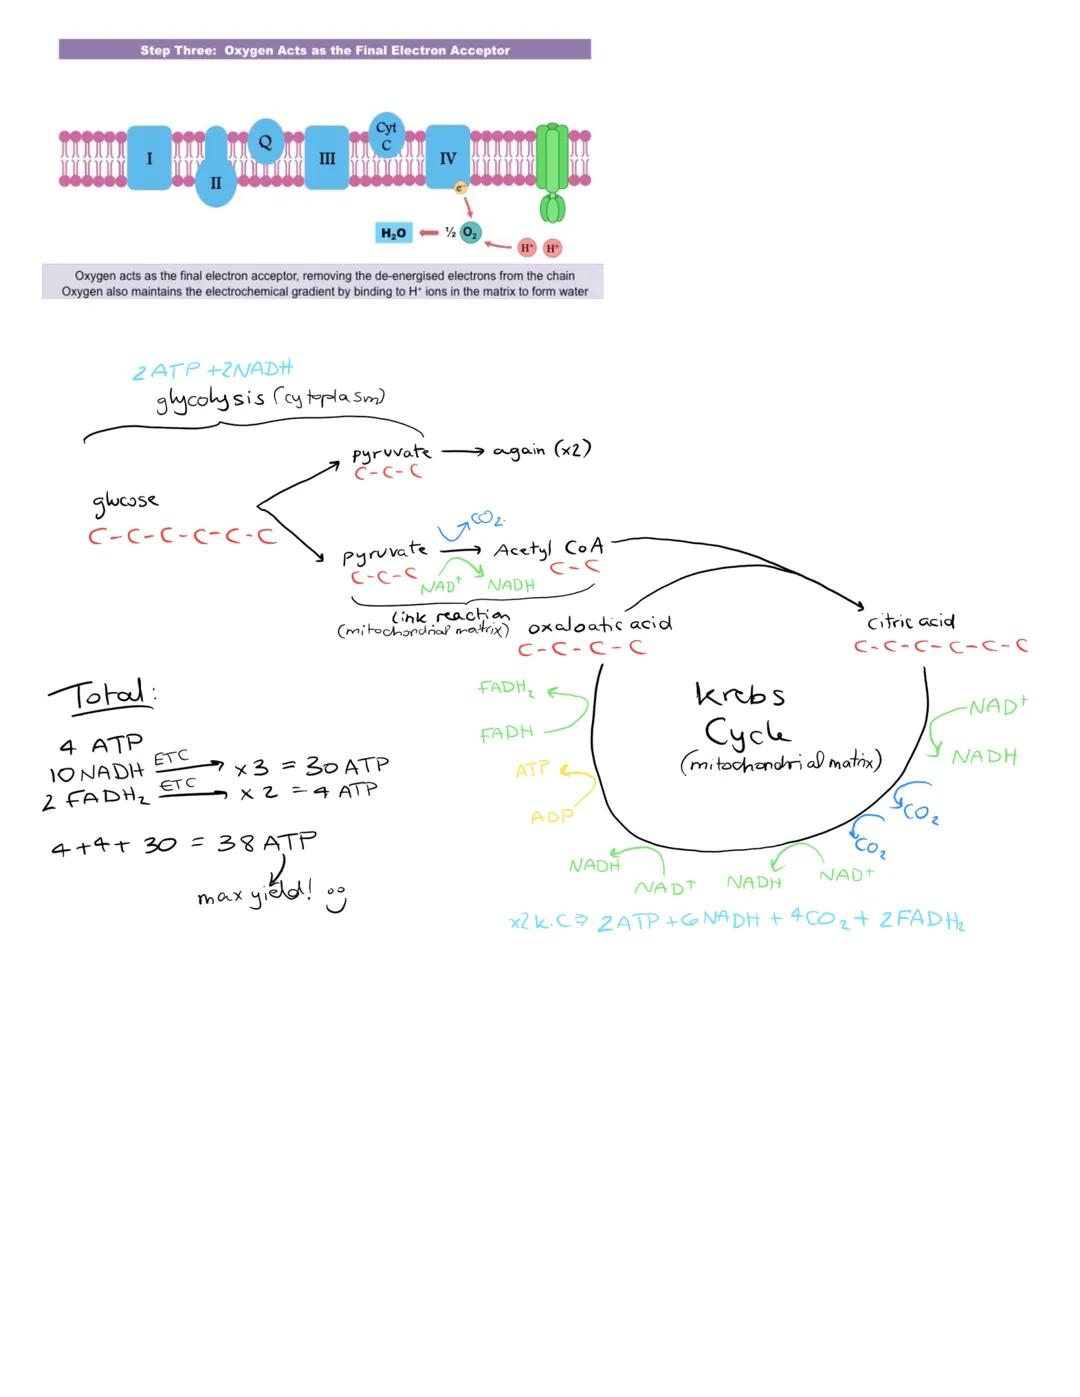 Step Three: Oxygen Acts as the Final Electron Acceptor
I
II
Q
III
Cyt
C
IV
e⁻
H₂O
½ O₂
H⁺ H⁺
Oxygen acts as the final electron acceptor, removing the de-energised electrons from the chain
Oxygen also maintains the electrochemical gradient by binding to H⁺ ions in the matrix to form water
2 ATP + 2NADH
glycolysis (cytoplasm)
pyruvate → again (x2)
C-C-C
glucose
C-C-C-C-C-C
CO₂
pyruvate → Acetyl CoA
C-C-C
C-C
NAD⁺ NADH
Link reaction
(mitochondrial matrix)
oxaloatic acid
C-C-C-C
citric acid
C-C-C-C-C-C
Total:
4 ATP
10 NADH ETC → x3 = 30 ATP
2 FADH₂ ETC → x2 = 4 ATP
4+4+30 = 38 ATP
max yield!
FADH₂
FADH
ATP
ADP
Krebs
Cycle
(mitochondrial matrix)
NAD⁺
NADH
CO₂
CO₂
NADH
NAD⁺
NADH
NAD⁺
x2 K.C ⇒ 2ATP + 6NADH + 4CO₂ + 2FADH₂